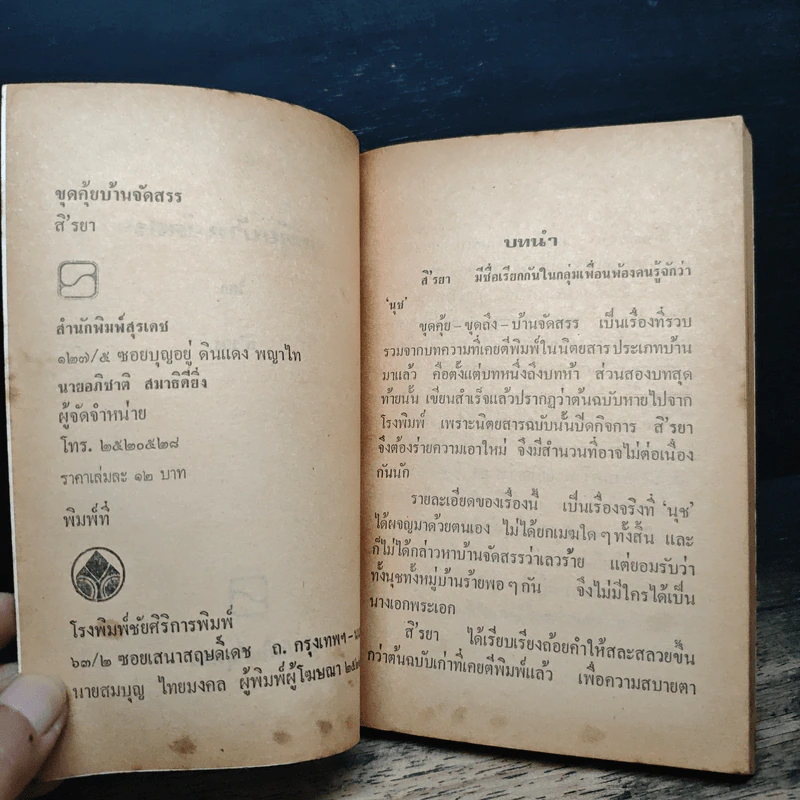 ขุดคุ้ยบ้านจัดสรร
สิ'รยา
สำนักพิมพ์สุรเดช
๑๒๗/๕ ซอยบุญอยู่ ดินแดง พญาไท
นายอภิชาติ สมาธิดียิ่ง
ผู้จัดจำหน่าย
โทร. ๒๕๒๐๕๒๘
ราคาเล่มละ ๑๒ บาท
พิมพ์ที่
โรงพิมพ์ชัยศิริการพิมพ์
๖๓/๒ ซอยเสนาสฤษดิ์เดช ถ. กรุงเทพฯ-
นายสมบุญ ไทยมงคล ผู้พิมพ์ผู้โฆษณา
บทนำ
สิ'รยา มีชื่อเรียกกันในกลุ่มเพื่อนพ้องคนรู้จักว่า
'นุช'
ขุดคุ้ย-ขุดถึง-บ้านจัดสรร เป็นเรื่องที่รวบ
รวมจากบทความที่เคยตีพิมพ์ในนิตยสารประเภทบ้าน
มาแล้ว คือตั้งแต่บทหนึ่งถึงบทห้า ส่วนสองบทสุด
ท้ายนั้น เขียนสำเร็จแล้วปรากฏว่าต้นฉบับหายไปจาก
โรงพิมพ์ เพราะนิตยสารฉบับนั้นปิดกิจการ สิ'รยา
จึงต้องร่ายความเอาใหม่ จึงมีสำนวนที่อาจไม่ต่อเนื่อง
กันนัก
รายละเอียดของเรื่องนี้ เป็นเรื่องจริงที่ 'นุช'
ได้ผจญมาด้วยตนเอง ไม่ได้ยกเมฆใด ๆ ทั้งสิ้น และ
ก็ไม่ได้กล่าวหาบ้านจัดสรรว่าเลวร้าย แต่ยอมรับว่า
ทั้งนุชทั้งหมู่บ้านร้ายพอ ๆ กัน จึงไม่มีใครได้เป็น
นางเอกพระเอก
สิ'รยา ได้เรียบเรียงถ้อยคำให้สละสลวยขึ้น
กว่าต้นฉบับเก่าที่เคยตีพิมพ์แล้ว เพื่อความสบายตา